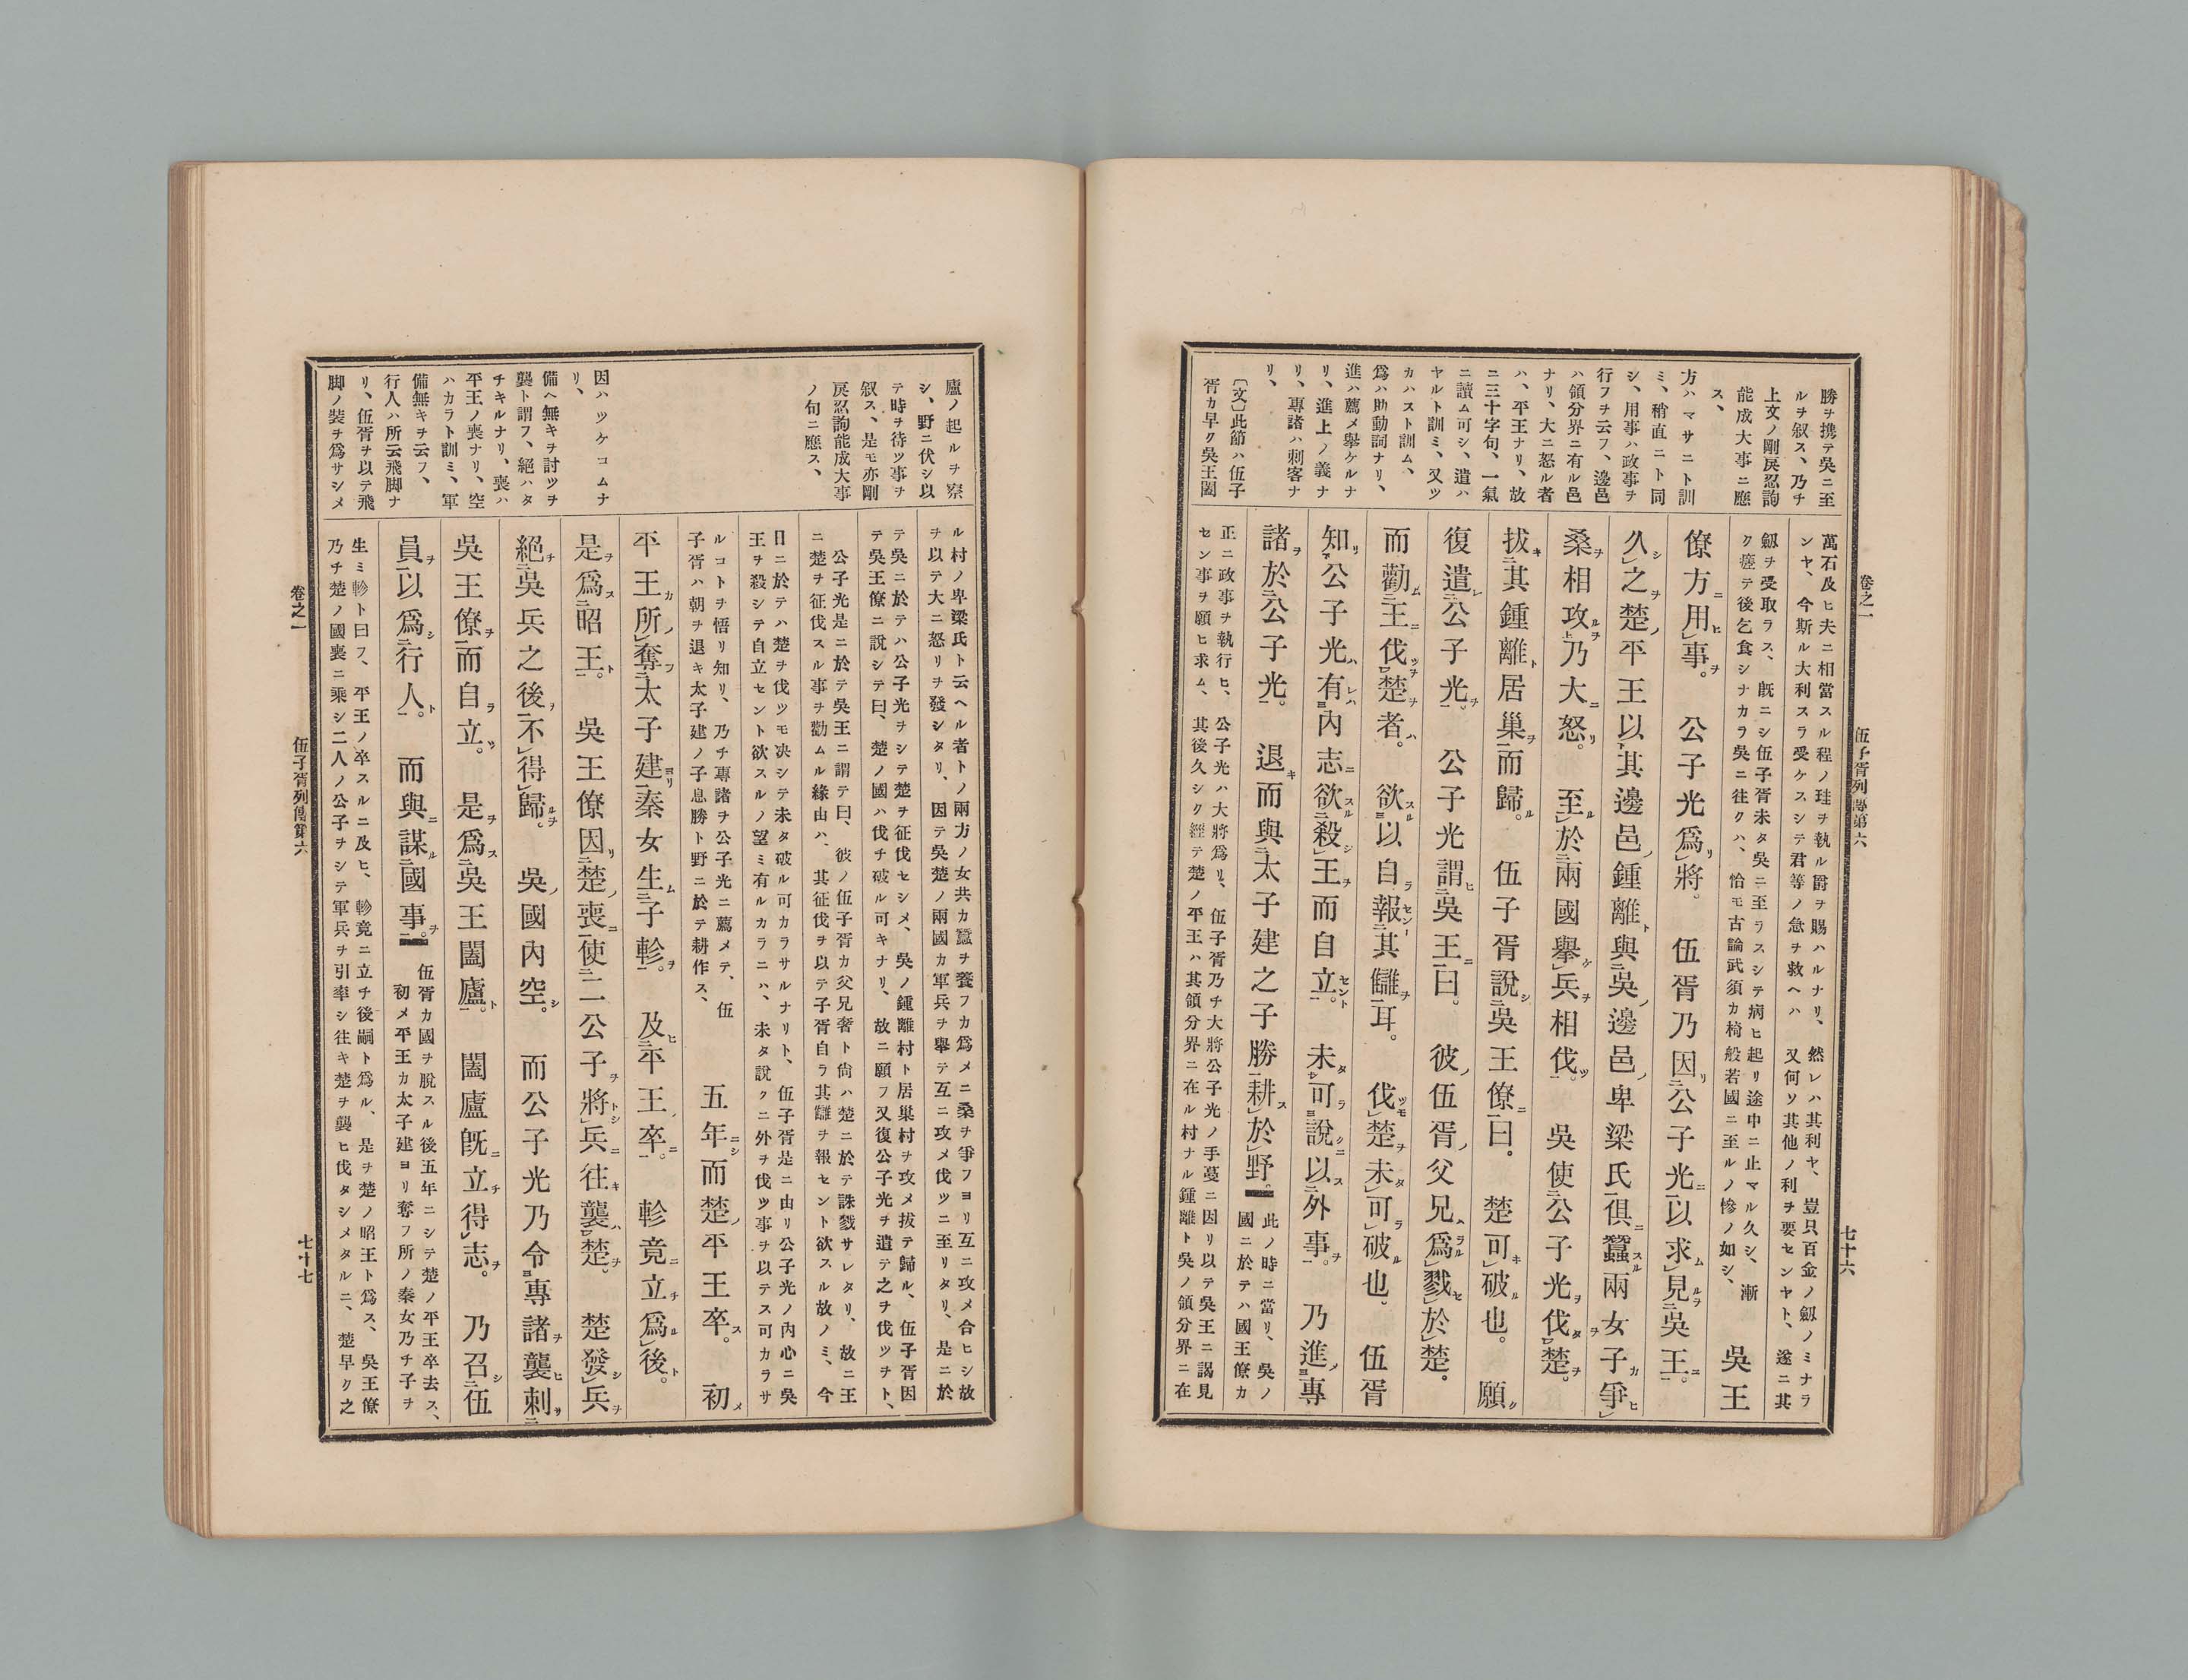 勝ヲ携テ吳ニ至
ルヲ叙ス、乃チ
上文ノ剛戾忍訽
能成大事ニ應
ス、
方ハマサニト訓
ミ、稍直ニト同
シ、用事ハ政事ヲ
行フヲ云フ、邊邑
ハ領分界ニ有ル邑
ナリ、大ニ怒ル者
ハ、平王ナリ、故
ニ三十字句、一氣
ニ讀ム可シ、遣ハ
ヤルト訓ミ、又ツ
カハスト訓ム、
爲ハ助動詞ナリ、
進ハ薦メ擧ケルナ
リ、進上ノ義ナ
リ、專諸ハ刺客ナ
リ、
〔文〕此節ハ伍子
胥カ早ク吳王闔
萬石及ヒ夫ニ相當スル程ノ珪ヲ執ル爵ヲ賜ハルナリ、然レハ其利ヤ、豈只百金ノ劔ノミナラ
ンヤ、今斯ル大利スラ受ケスシテ君等ノ急ヲ救ヘハ又何ソ其他ノ利ヲ要センヤト、遂ニ其
劔ヲ受取ラス、旣ニシ伍子胥未タ吳ニ至ラスシテ病ヒ起リ途中ニ止マル久シ、漸
ク瘥テ後乞食シナカラ吳ニ往クハ、恰モ古論武須カ椅般若國ニ至ルノ慘ノ如シ、
吳王
僚方ニ用ヒ事ヲ。公子光爲リ將。伍胥乃因リ公子光ニ以求ム見ルヲ吳王ニ。
久シ之ヲ楚ノ平王以其邊邑ノ鍾離ト與吳ノ邊邑ノ卑梁氏俱ニ蠶スル兩女子カ爭ヒ
桑ヲ相攻ルヲ乃大ニ怒リ。至ル於兩國擧ケ兵ヲ相伐ツ。吳使公子光ヲ伐タ楚ヲ。
拔キ其鍾離ト居巢ヲ而歸ル。伍子胥說シ吳王僚ニ曰。楚可キ破ル也。願ク
復遣レ公子光ヲ。公子光謂ヒ吳王ニ曰。彼ノ伍胥ノ父兄ハ爲ラル戮セ於楚。
而勸ム王ニ伐ツヲ楚ヲ者ハ。欲スル以自ラ報セント其讎ヲ耳。伐ツモ楚ヲ未タ可ラ破ル也。伍胥
知リ公子光ハ有レハ內志ニ欲スル殺シ王ヲ而自立セント。未タ可ラ說クニ以ス外事ヲ。乃進ノ專
諸ヲ於公子光。退キ而與太子建之子勝耕ス於野。此ノ時ニ當リ、吳ノ
國ニ於テハ國王僚カ
正ニ政事ヲ執行ヒ、公子光ハ大將爲リ、伍子胥乃チ大將公子光ノ手蔓ニ因リ以テ吳王ニ謁見
セン事ヲ願ヒ求ム、其後久シク經テ楚ノ平王ハ其領分界ニ在ル村ナル鍾離ト吳ノ領分界ニ在
卷之一
伍子胥列傳第六
七十六
廬ノ起ルヲ察
シ、野ニ伏シ以
テ時ヲ待ツ事ヲ
叙ス、是モ亦剛
戾忍訽能成大事
ノ句ニ應ス、
因ハツケコムナ
リ、
備ヘ無キヲ討ツヲ
襲ト謂フ、絕ハタ
チキルナリ、喪ハ
平王ノ喪ナリ、空
ハカラト訓ミ、軍
備無キヲ云フ、
行人ハ所云飛脚ナ
リ、伍胥ヲ以テ飛
脚ノ裝ヲ爲サシメ
ル村ノ卑梁氏ト云ヘル者トノ兩方ノ女共カ蠶ヲ養フカ爲メニ桑ヲ爭フヨリ互ニ攻メ合ヒシ故
ヲ以テ大ニ怒リヲ發シタリ、因テ吳楚ノ兩國カ軍兵ヲ擧テ互ニ攻メ伐ツニ至リタリ、是ニ於
テ吳ニ於テハ公子光ヲシテ楚ヲ征伐セシメ、吳ノ鍾離村ト居巢村ヲ攻メ拔テ歸ル、伍子胥因
テ吳王僚ニ說シテ曰、楚ノ國ハ伐チ破ル可キナリ、故ニ願フ又復公子光ヲ遣テ之ヲ伐ツヲト、
公子光是ニ於テ吳王ニ謂テ曰、彼ノ伍子胥カ父兄奢ト尙ハ楚ニ於テ誅戮サレタリ、故ニ王
ニ楚ヲ征伐スル事ヲ勸ムル緣由ハ、其征伐ヲ以テ子胥自ラ其讎ヲ報セント欲スル故ノミ、今
日ニ於テハ楚ヲ伐ツモ决シテ未タ破ル可カラサルナリト、伍子胥是ニ由リ公子光ノ內心ニ吳
王ヲ殺シテ自立セント欲スルノ望ミ有ルカラニハ、未タ說クニ外ヲ伐ツ事ヲ以テス可カラサ
ルコトヲ悟リ知リ、乃チ專諸ヲ公子光ニ薦メテ、伍
子胥ハ朝ヲ退キ太子建ノ子息勝ト野ニ於テ耕作ス、
五年ニシ而楚ノ平王卒ス。初メ
平王カ所ノ奪フ太子建ヨリ秦女生ム子軫ヲ。及ヒ平王ノ卒ニ。軫竟ニ立チ爲ル後ト。
是ヲ爲ス昭王ト。吳王僚因リ楚ノ喪ニ使二公子ヲ將トシ兵ニ往キ襲ハ楚ヲ。楚發シ兵ヲ
絕チ吳兵之後ヲ不得歸ルヲ。吳ノ國內空シ。而公子光乃令專諸ヲ襲ヒ刺ヲ
吳王僚ヲ而自ラ立ツ。是ヲ爲ス吳王闔廬ト。闔廬旣ニ立チ得志ヲ。乃召シ伍
員ヲ以爲シ行人ト。而與ニ謀ル國事ヲ。伍胥カ國ヲ脫スル後五年ニシテ楚ノ平王卒去ス、
初メ平王カ太子建ヨリ奪フ所ノ秦女乃チ子ヲ
生ミ軫ト曰フ、平王ノ卒スルニ及ヒ、軫竟ニ立チ後嗣ト爲ル、是ヲ楚ノ昭王ト爲ス、吳王僚
乃チ楚ノ國喪ニ乘シ二人ノ公子ヲシテ軍兵ヲ引率シ往キ楚ヲ襲ヒ伐タシメタルニ、楚早ク之
卷之一
伍子胥列傳第六
七十七